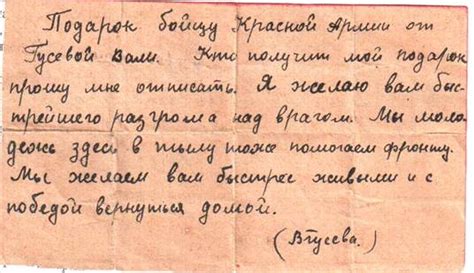 Подарок бойцу Красной Армии от
Гусевой Вали. Кто получит мой подарок
прошу мне отписать. Я желаю вам быс-
трейшего разгрома над врагом. Мы моло
дежь здесь в тылу тоже помогаем фронту.
Мы желаем вам быстрее живыми и с
победой вернуться домой.
(ВГусева.)